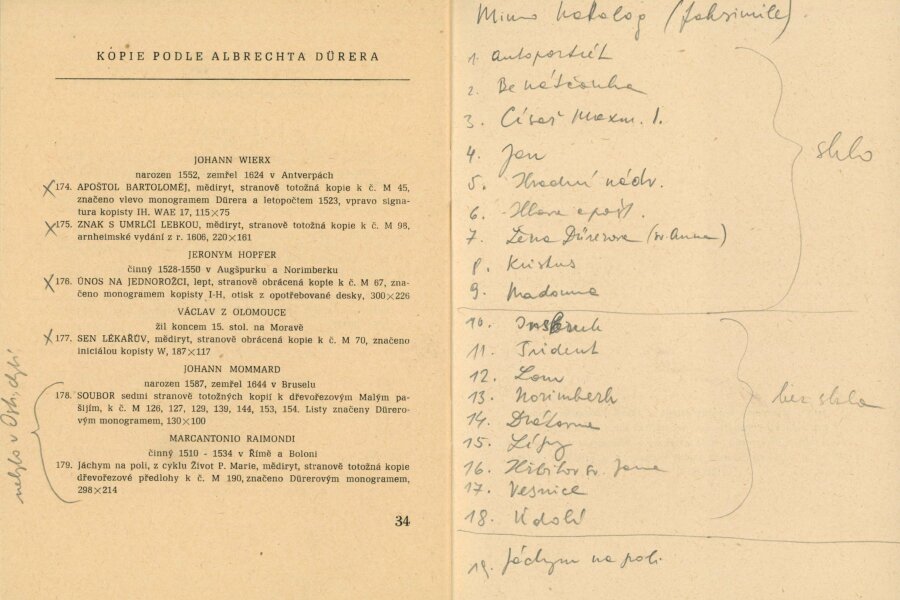 KOPIE PODLE ALBRECHTA DÜRERA
JOHANN WIERX
narozen 1552, zemřel 1624 v Antverpách
174. APOŠTOL BARTOLOMĚJ, mědiryt, stranově totožná kopie k č. M 45,
značeno vlevo monogramem Dürera a letopočtem 1523, vpravo signa-
tura kopisty IH. WAE 17, 115×75
175. ZNAK S UMRLČÍ LEBKOU, mědiryt, stranově totožná kopie k č. M 98,
arnheimské vydání z r. 1606, 220×161
JERONYM HOPFER
činný 1528-1550 v Augšpurku a Norimberku
176. ÚNOS NA JEDNOROŽCI, lept, stranově obrácená kopie k č. M 67, zna-
čeno monogramem kopisty I-H, otisk z opotřebované desky, 300×226
VÁCLAV Z OLOMOUCE
žil koncem 15. stol. na Moravě
177. SEN LÉKAŘŮV, mědiryt, stranově obrácená kopie k č. M 70, značeno
iniciálou kopisty W, 187×117
JOHAN MOMMARD
narozen 1587, zemřel 1644 v Bruselu
178. SOUBOR sedmi stranově totožných kopií k dřevořezovým Malým pa-
šijím, k č. M 126, 127, 129, 139, 144, 153, 154. Listy značeny Dürero-
vým monogramem, 130×100
MARCANTONIO RAIMONDI
činný 1510 - 1534 v Římě a Boloni
179. Jáchym na poli, z cyklu Život P. Marie, mědiryt, stranově totožná kopie
dřevořezové předlohy k č. M 190, značeno Dürerovým monogramem,
298×214
34
nebylo v
Mimo katalog (faksimile)
1. autoportrét
2. Benátčanka
3. Císař Maxm. I.
4. Jan
5. Hradní nádv.
6. Hlava apošt.
7. Žena Dürerova (sv. Anna)
8. Kristus
9. Madonna
sklo
10. Insbruk
11. Trident
12. Lom
13. Norimberk
14. Drátovna
15. Lípy
16. Hřbitov sv. Jana
17. Vesnice
18. Údolí
bez skla
19. Jáchym na poli